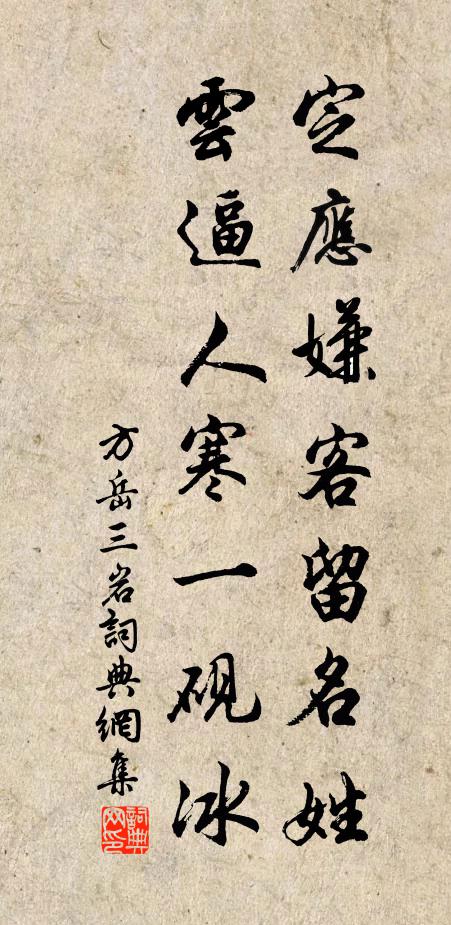 定應嫌客留名姓
雲逼人寒一硯冰
方岳三岩詞典網集
詞典
网印